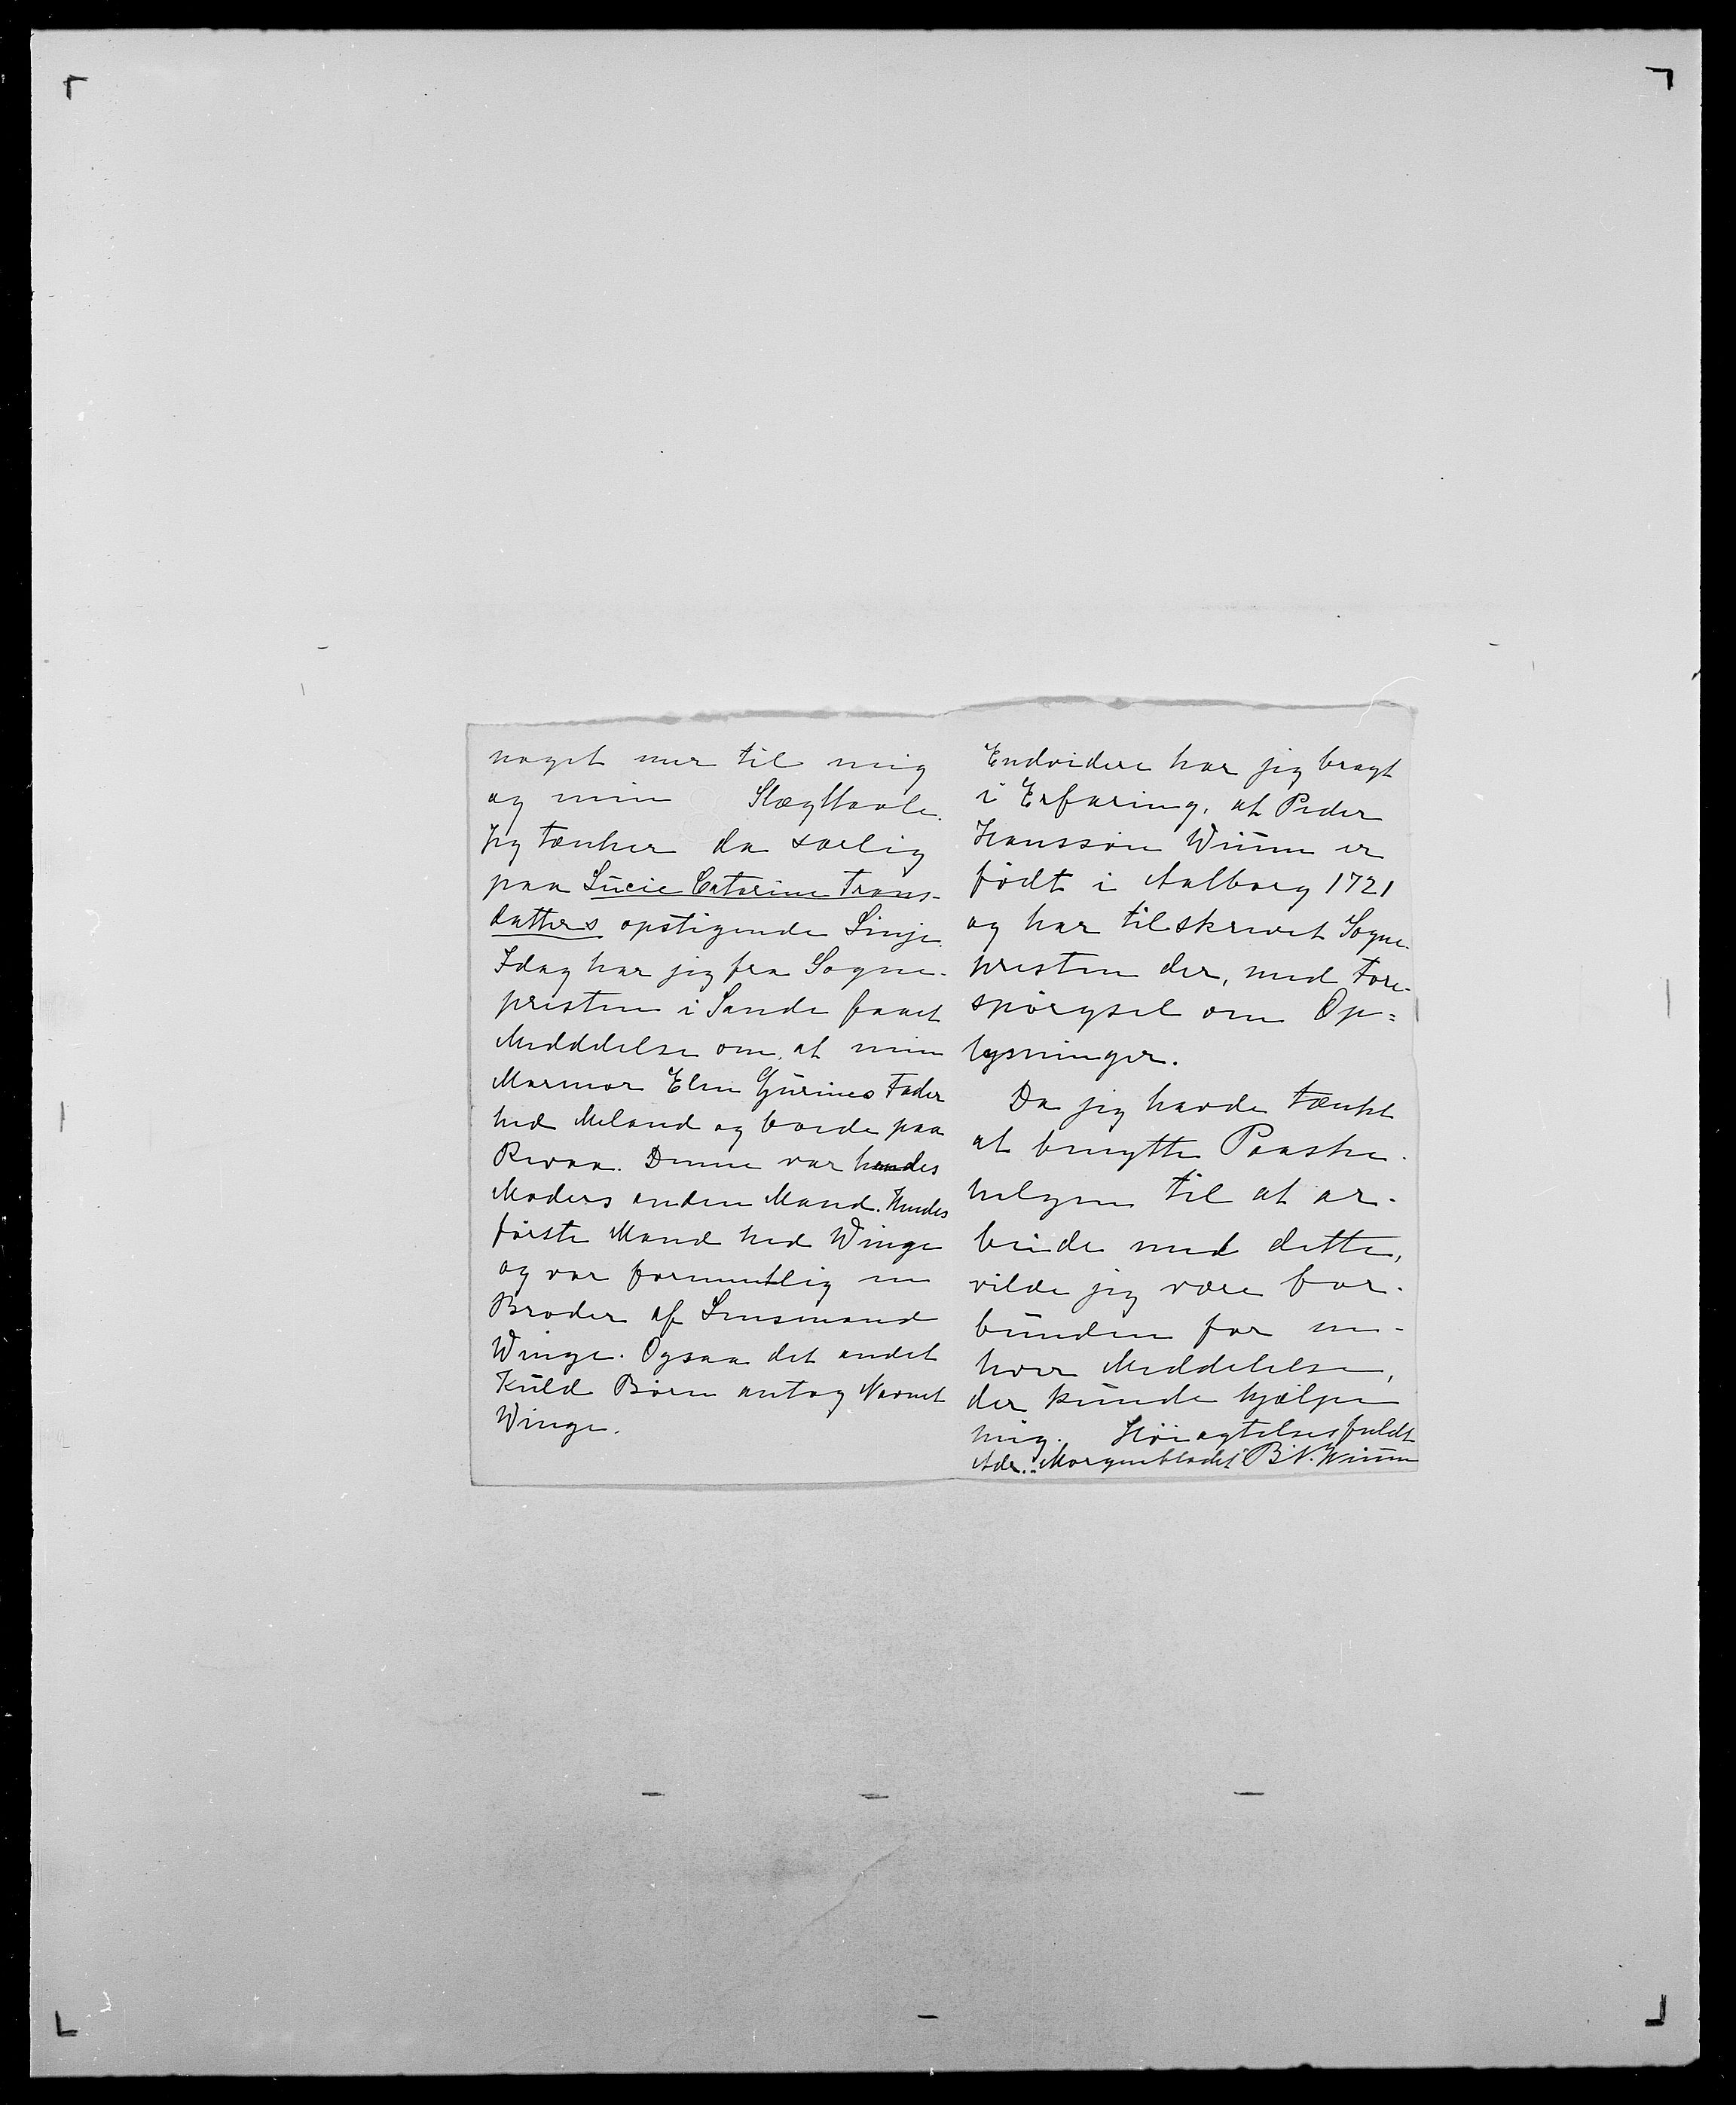 noget mer til mig
og min Slægttavle.
Jeg tænker da særlig
paa Lucie Catarine Trans-
datters opstigende Linje.
Idag har jeg fra Sogne-
presten i Sande faaet
Meddelelse om, at min
Marmor Elen Gurines Fader
hed Meland og boede paa
Revaa. Denne var hendes
Moders anden Mand. Hendes
første Mand hed Winge
og var formentlig en
Broder af Lensmand
Winge. Ogsaa det andet
Kuld Børn antog Navnet
Winge.
Endvidere har jeg bragt
i Erfaring, at Peder
Hanssøn Wium er
født i Aalborg 1721
og har tilskrevet Sogne-
presten der, med Fore-
spørgsel om Op=
lysninger.
Da jeg havde tænkt
at benytte Paaske-
helgen til at ar-
beide med dette,
vilde jeg være for-
bunden for en-
hver Meddelelse,
der kunde hjælpe
mig. Høiagtelsesfuldt
Adr. "Morgenbladet" B. N. Wium